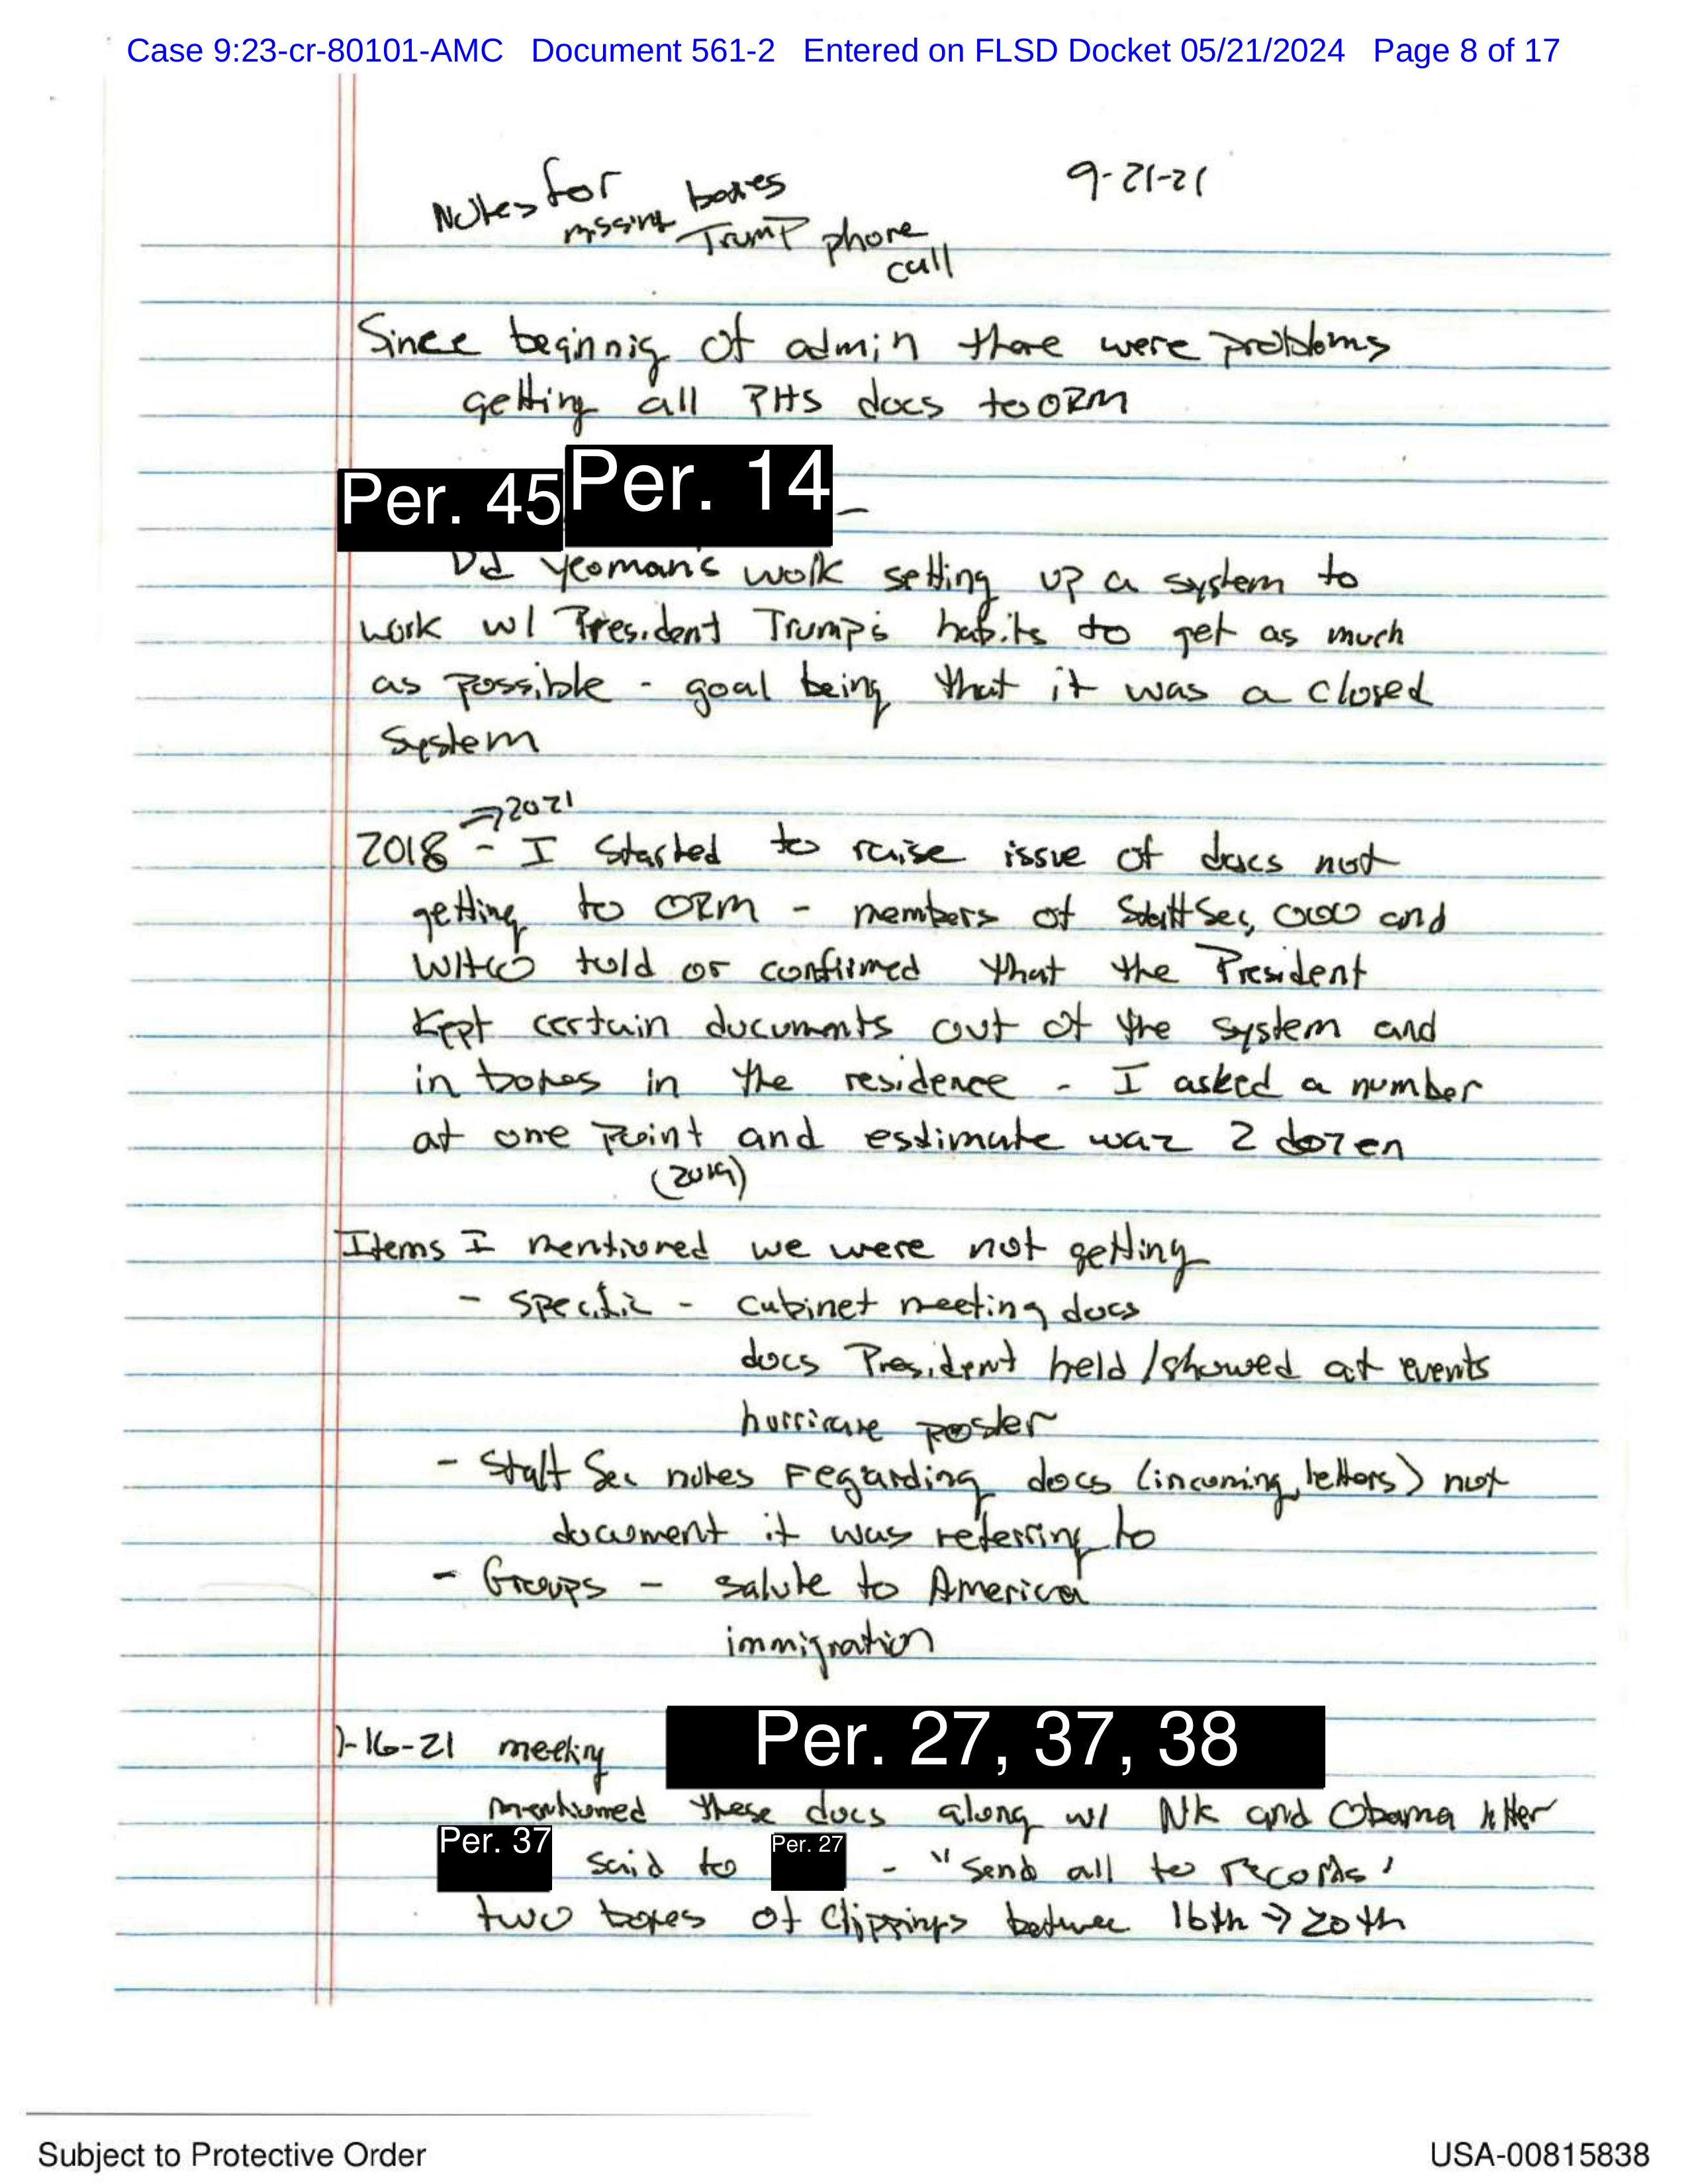 Case 9:23-cr-80101-AMC Document 561-2 Entered on FLSD Docket 05/21/2024 Page 8 of 17
9-21-21
Notes for
missing boxes
Trump phone
call
Since beginnig of admin there were problems
getting all PHS docs to ORM
Per. 45 Per. 14 -
Did yeoman's work setting up a system to
work w/ President Trump's habits to get as much
as possible - goal being that it was a closed
system
⇒ 2021
2018 - I started to raise issue of docs not
getting to ORM - members of StaffSec, OOO and
WHCO told or confirmed that the President
kept certain documents out of the system and
in boxes in the residence - I asked a number
at one point and estimate was 2 dozen
(2019)
Items I mentioned we were not getting
- specific - cabinet meeting docs
docs President held/showed at events
hurricane poster
- Staff Sec notes regarding docs (incoming letters) not
document it was referring to
- Groups - salute to America
immigration
1-16-21 meeting Per. 27, 37, 38
mentioned these docs along w/ NK and Obama letter
Per. 37 said to Per. 27 - "send all to records'
two boxes of clippings between 16th → 20th
Subject to Protective Order
USA-00815838